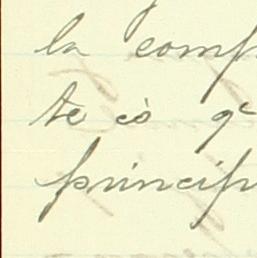 la comp
te cò q
princip